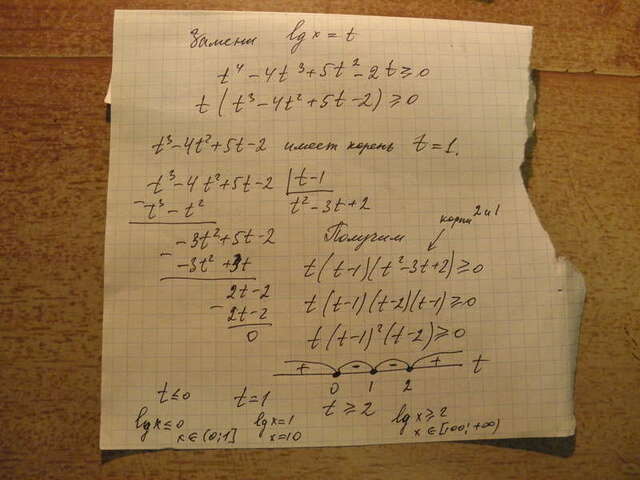 Замени lg x = t
t⁴ - 4t³ + 5t² - 2t ≥ 0
t(t³ - 4t² + 5t - 2) ≥ 0
t³ - 4t² + 5t - 2 имеет корень t = 1.
t³ - 4t² + 5t - 2 | t - 1
- t³ - t²
t² - 3t + 2
- 3t² + 5t - 2
- -3t² + 3t
2t - 2
- 2t - 2
0
Получим
корни 2 и 1
t(t-1)(t² - 3t + 2) ≥ 0
t(t-1)(t-2)(t-1) ≥ 0
t(t-1)²(t-2) ≥ 0
+ - - + t
0 1 2
t ≤ 0 t = 1 t ≥ 2
lg x ≤ 0 lg x = 1 lg x ≥ 2
x ∈ (0; 1] x = 10 x ∈ [100; +∞)